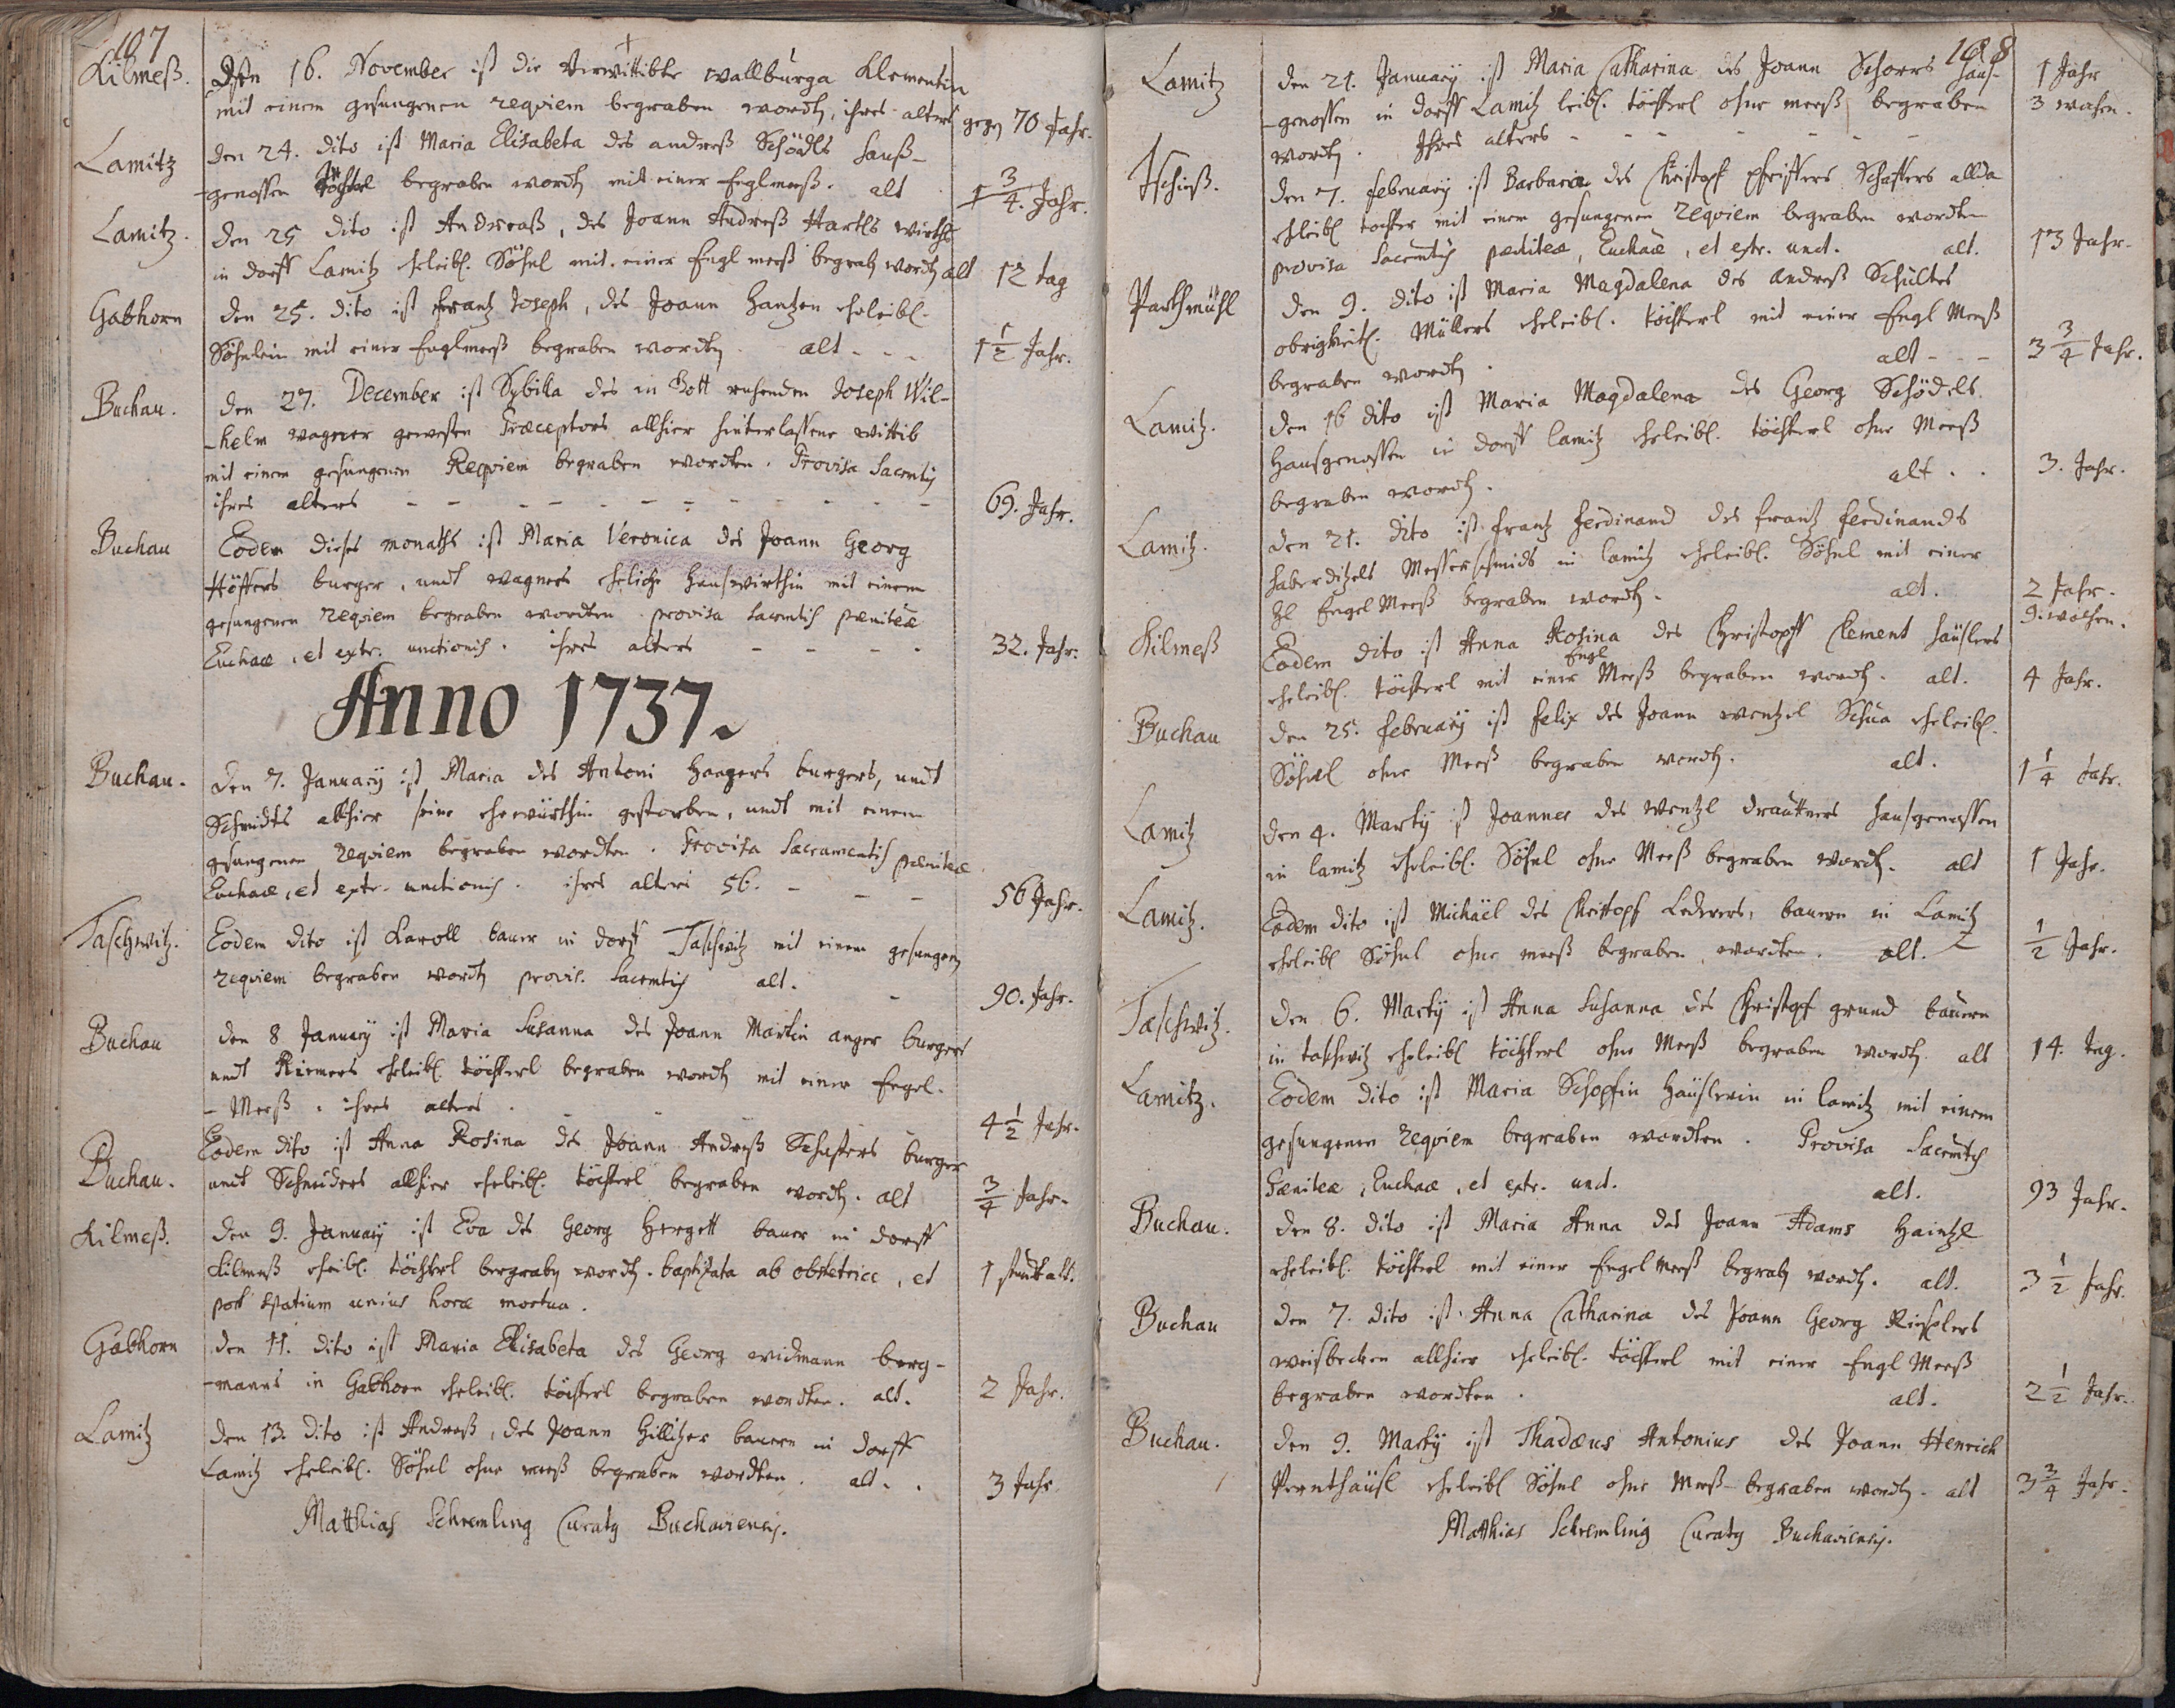 107
Kilmeß.
Den 16. November ist die Verwittibte wallburga Klementin
mit einem gesungenen requiem begraben wordtn, ihres alters gegen 70 Jahr.
Lamitz
den 24. dito ist Maria Elisabeta des andreß Schödls hauß-
-genossen töchterl begraben wordtn mit einer Englmeeß. alt 1 3/4. Jahr.
Lamitz.
den 25 dito ist Andreaß, des Joann Andreß Hartls wirths
in dorff Lamitz eheleibl. Söhnl mit einer Engl meeß begrabn wordtn alt 12 tag
Gabhorn
den 25. dito ist frantz Joseph, des Joann Hantzen eheleibl.
Söhnlein mit einer Englmeeß begraben wordtn. alt - - - 1 1/2 Jahr.
Buchau.
den 27. December ist Sybilla des in Gott ruhenden Joseph Wil-
-helm wagner gewesten Præceptors allhier hinterlassene wittib
mit einem gesungenen Requiem begraben wordten. Provisa Sacentis
ihres alters - - - - - - 69. Jahr.
Buchau
Eodem dieses monaths ist Maria Veronica des Joann Georg
Höffers burger, undt wagners eheliche hauswirthin mit einem
gesungenen requiem begraben wordten provisa sacentis pœniteæ
Euchaæ, et extr. unctionis. ihres alters - - - - 32. Jahr.
Anno 1737.
Buchau.
den 7. January ist Maria des Antoni Haagers burgers, undt
Schmidts allhier seine ehewürthin gestorben, undt mit einem
gesungenen requiem begraben wordten. Provisa Sacramentis pœniteæ
Euchaæ, et extr. unctionis. ihres alters 56. - - - 56 Jahr.
Taschwitz.
Eodem dito ist Karoll baur in dorff Taschwitz mit einem gesungen
requiem begraben wordtn provis. Sacemtis alt. - 90. Jahr.
Buchau
den 8 January ist Maria Susanna des Joann Martin anger burgers
undt Riemers eheleibl. töchterl begraben wordtn mit einer Engel-
-Meeß. ihres alters. - - - 4 1/2 Jahr.
Buchau.
Eodem dito ist Anna Rosina des Joann Andreß Schaffers burger
undt Schneiders allhier eheleibl. töchterl begraben wordtn. alt 3/4 Jahr.
Kilmeß.
den 9. January ist Eva des Georg Hergett baur in dorff
Kilmeß eheleibl. töchterl begrabn wordtn. baptizata ab obstetrice, et 1 stundt alt.
post spatium unius horæ mortua.
Gabhorn
den 11. dito ist Maria Elisabeta des Georg widmann berg-
-manns in Gabhorn eheleibl. töchterl begraben wordten. alt. 2 Jahr.
Lamitz
den 13. dito ist Andreß, des Joann Hillitzer bauern in dorff
Lamitz eheleibl. Söhnl ohne meeß begraben wordten. alt. . 3 Jahr
Matthias Schremling Curatg Buchaviensis.
108
Lamitz
den 21. January ist Maria Catharina des Joann Schorrs haus- 1 Jahr
-genossen in dorff Lamitz leibl. töchterl ohne meeß begraben 3 wochen.
wordtn. Ihres alters - - - - -
Tschieß.
den 7. february ist Barbara des Christopf Pfeiffers Schaffers allda
eheleibl tochter mit einem gesungenen requiem begraben wordten
provisa sacemtis pœniteæ, Euchaæ, et extr. unct. alt. 13 Jahr.
Parthmühl
den 9. dito ist Maria Magdalena des andreß Schultes
obrigkeitl. Müllers eheleibl. töchterl mit einer Engl Meeß
begraben wordtn. alt - - - 3 3/4 Jahr.
Lamitz.
den 16 dito ist Maria Magdalena des Georg Schödels
hausgenossen in dorff lamitz eheleibl. töchterl ohne Meeß
begraben wordtn. alt . . 3. Jahr.
Lamitz.
den 21. dito ist frantz ferdinand des frantz ferdinands
haberditzels Messerschmids in lamitz eheleibl. Söhnl mit einer
hl Engel Meeß begraben wordtn. alt. 2 Jahr.
9. wochen.
Kilmeß
Eodem dito ist Anna Rosina des Christopff Clement häuslers
eheleibl. töchterl mit einer Engl Meeß begraben wordtn. alt. 4 Jahr.
Buchau
den 25. february ist felix des Joann wentzel Schua eheleibl.
Söhnl ohne Meeß begraben wordtn. alt. 1 1/4 Jahr.
Lamitz
den 4. Marty ist Joannes des wentzl drauttners hausgenossen
in lamitz eheleibl. Söhnl ohne Meeß begraben wordtn. alt 1 Jahr.
Lamitz.
Eodem dito ist Michäel des Christopf Lederers, bauern in Lamitz
eheleibl Söhnl ohne meeß begraben wordten. alt. 1/2 Jahr.
Taschwitz.
den 6. Marty ist Anna Susanna des Christopf grund bauern
in taschwitz eheleibl töchterl ohne Meeß begraben wordtn. alt 14. tag.
Lamitz.
Eodem dito ist Maria Schopfin häuslerin in lamitz mit einem
gesungenen requiem begraben wordten. Provisa Sacemtis
Pœniteæ, Euchaæ, et extr. unct. alt. 93 Jahr.
Buchau.
den 8. dito ist Maria Anna des Joann Adams Haintzl
eheleibl. töchterl mit einer Engel meeß begrabn wordtn. alt. 3 1/2 Jahr.
Buchau
den 7. dito ist Anna Catharina des Joann Georg Riechlers
weisbecken allhier eheleibl. töchterl mit einer Engl Meeß
begraben wordten. alt. 2 1/2 Jahr.
Buchau.
den 9. Marty ist Thadæus Antonius des Joann Henrich
Prenthäusl eheleibl Söhnl ohne Meeß begraben wordtn. alt 3 3/4 Jahr.
Matthias Schremling Curatg Buchaviensis.